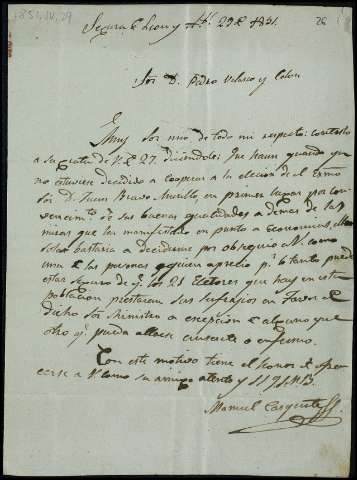 1851.IV.29
26
Segura de Leon y Abl. 29 de 1851.
Sor. D. Pedro Velasco y Colon
Muy Sor. mio de todo mi respeto: contesto
a su grata de V. de 27. diciendole: Que haun quando yo
no estuviese decidido a cooperar a la eleccion de el Exmo
Sor D. Juan Bravo Murillo en primer lugar por con
vencimto. de sus buenas qualidades a demas de las
mismas que ha manifestado en punto a Economias,
bastaria a decidirme por obsequio V. como
una de las personas a quien aprecio pr. lo tanto puede
estar seguro de qe. los 21 Electores que hay en esta
poblacion prestaran sus sufrajios en favor de
dicho Sor Ministro a escepcion de alguno que
otro qe. pueda allarse ausente o enfermo.
Con este motivo tiene el honor de ofre
cerse a V. como su amigo atento y S.S.Q.S.M.B.
Manuel